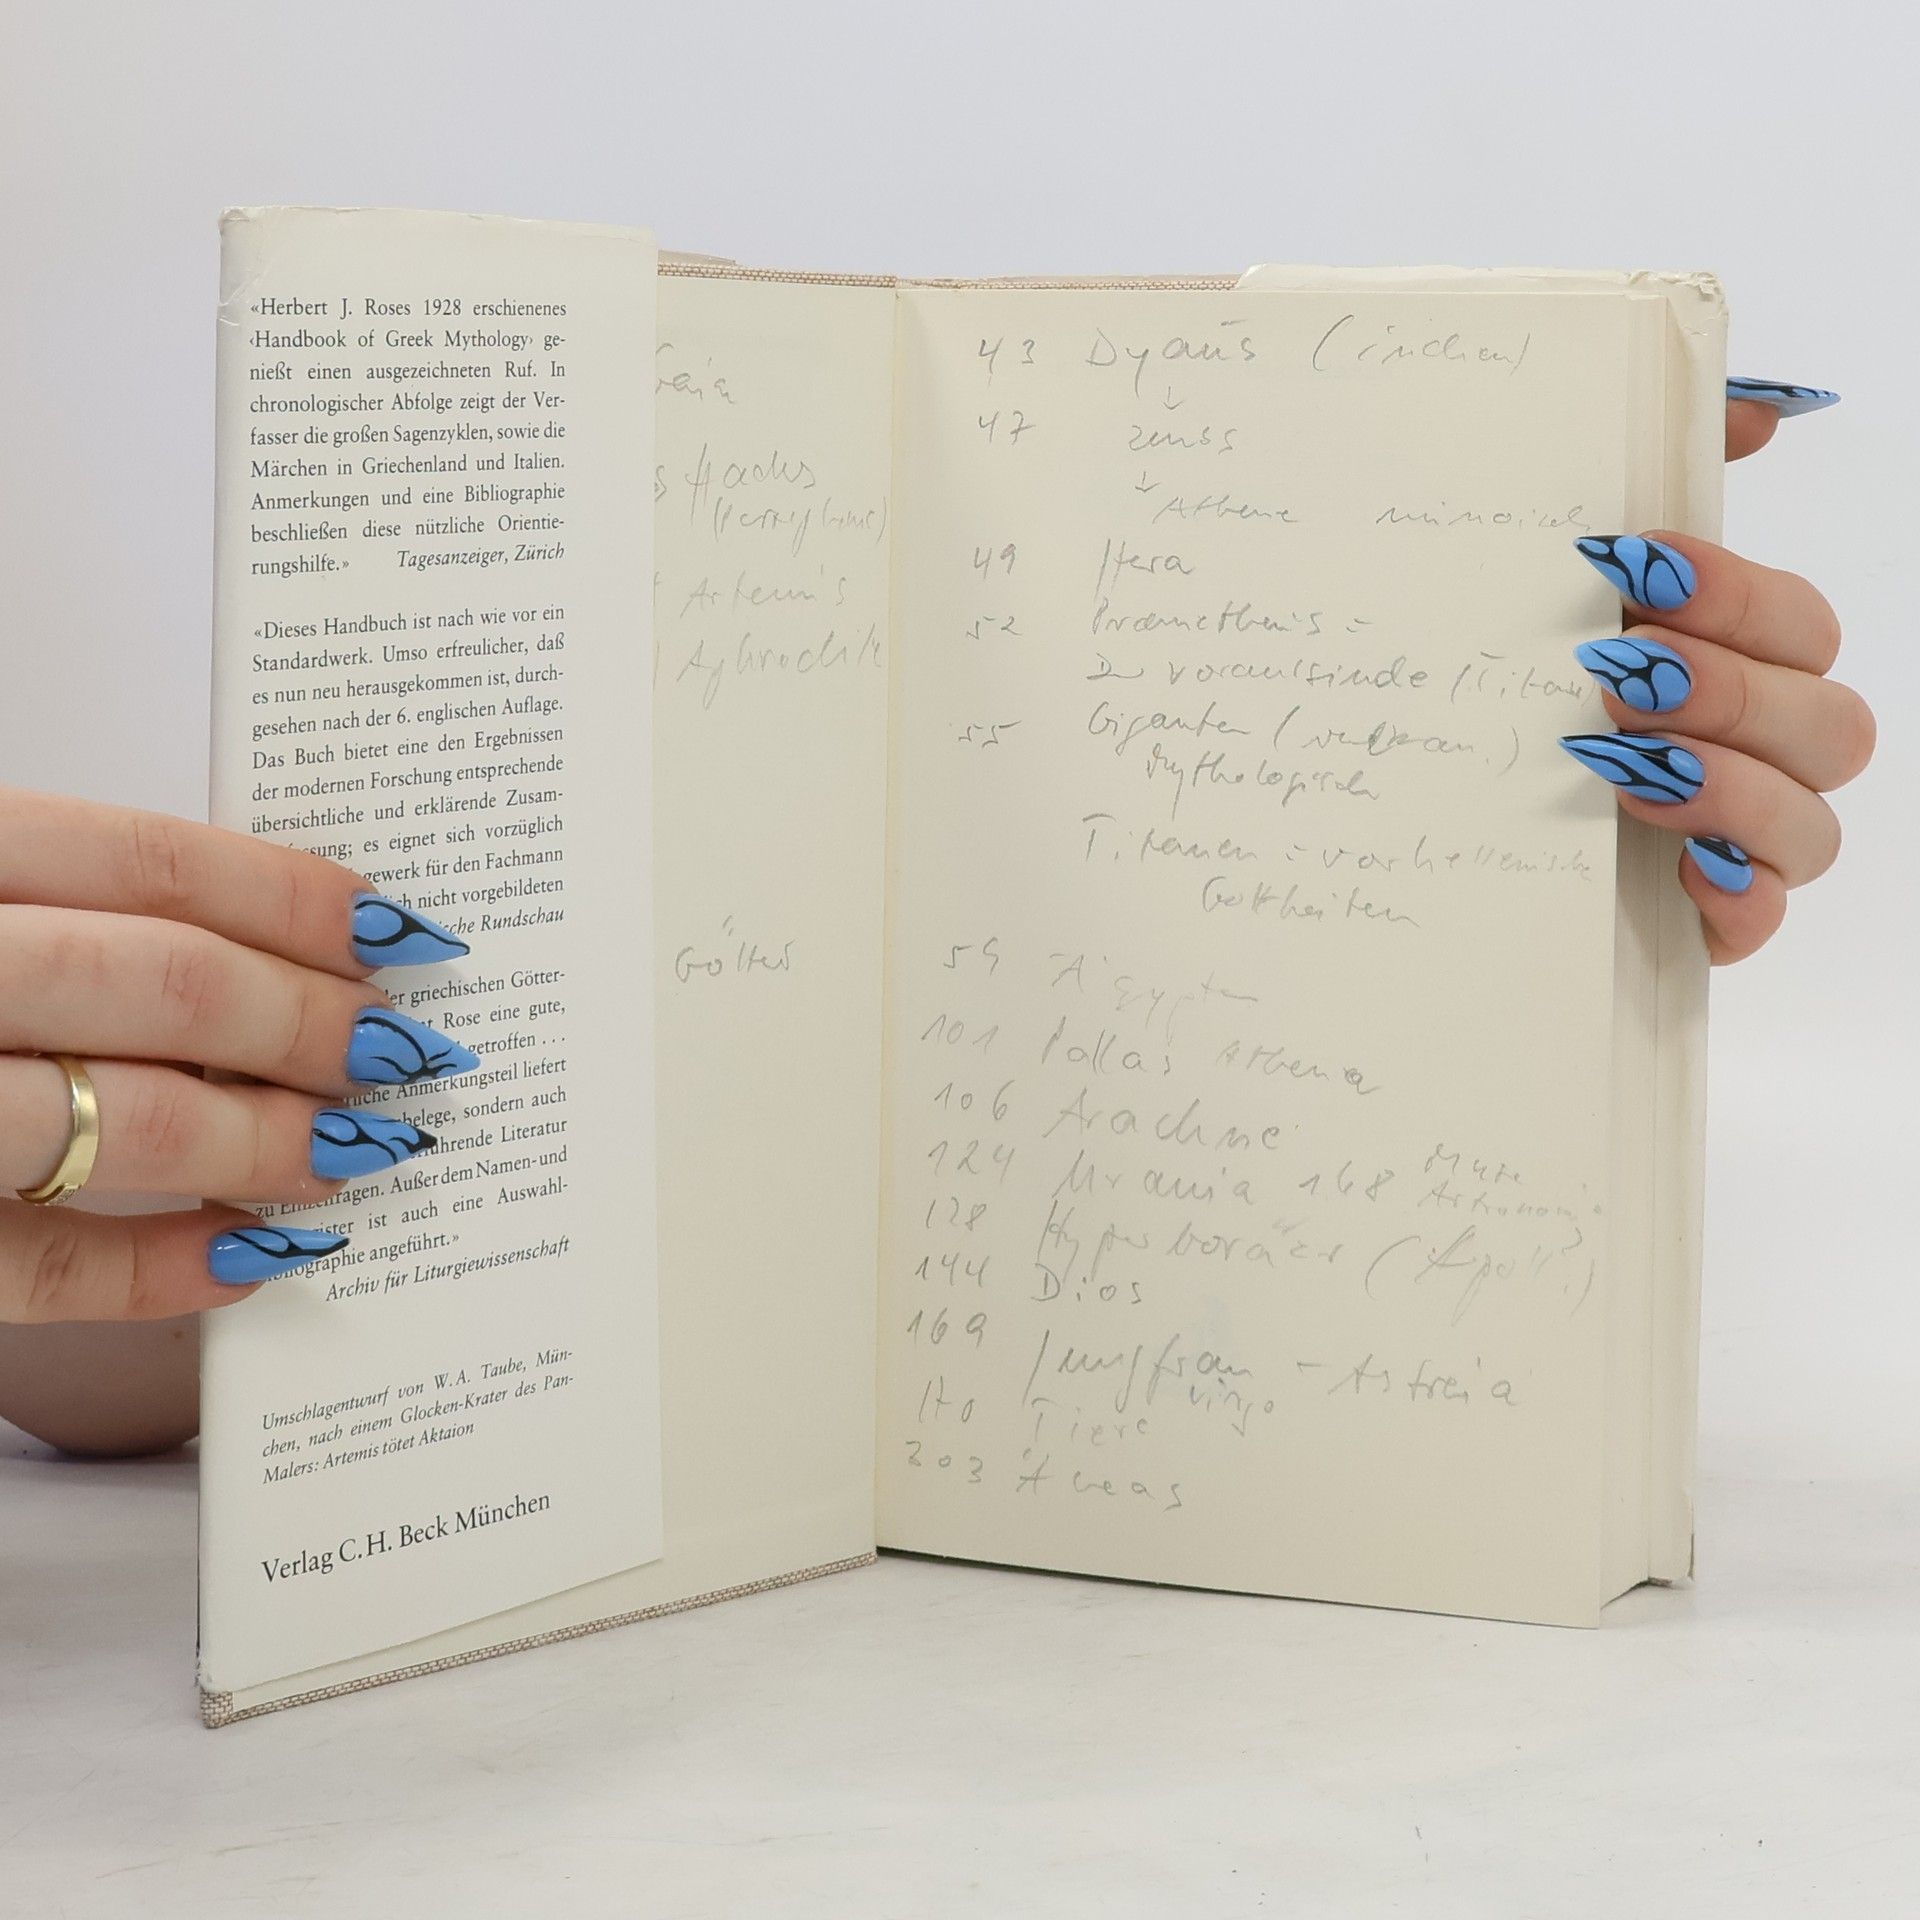 «Herbert J. Roses 1928 erschienenes
‹Handbook of Greek Mythology› ge-
nießt einen ausgezeichneten Ruf. In
chronologischer Abfolge zeigt der Ver-
fasser die großen Sagenzyklen, sowie die
Märchen in Griechenland und Italien.
Anmerkungen und eine Bibliographie
beschließen diese nützliche Orientie-
rungshilfe.» Tagesanzeiger, Zürich
«Dieses Handbuch ist nach wie vor ein
Standardwerk. Umso erfreulicher, daß
es nun neu herausgekommen ist, durch-
gesehen nach der 6. englischen Auflage.
Das Buch bietet eine den Ergebnissen
der modernen Forschung entsprechende
übersichtliche und erklärende Zusam-
sung; es eignet sich vorzüglich
gewerk für den Fachmann
ich nicht vorgebildeten
sche Rundschau
er griechischen Götter-
Rose eine gute,
getroffen . . .
rliche Anmerkungsteil liefert
belege, sondern auch
ührende Literatur
zu Einzelfragen. Außer dem Namen- und
ister ist auch eine Auswahl-
bliographie angeführt.»
Archiv für Liturgiewissenschaft
Umschlagentwurf von W. A. Taube, Mün-
chen, nach einem Glocken-Krater des Pan-
Malers: Artemis tötet Aktaion
Verlag C. H. Beck München
Hades
Artemis
Aphrodite
Götter
43 Dyaus (indien)
↓
47 Zeus
↓
Athene minoisch
49 Hera
52 Prometheus =
voraus
55 Giganten
Mythologisch
Titanen = vorhellenische
Gottheiten
59 Ägypten
101 Pallas Athena
106 Arachne
124 Urania 168 Muse
128 Hyperboräer
144 Dios
169 Jungfrau – Astreia
virgo
170 Tiere
203 Äneas